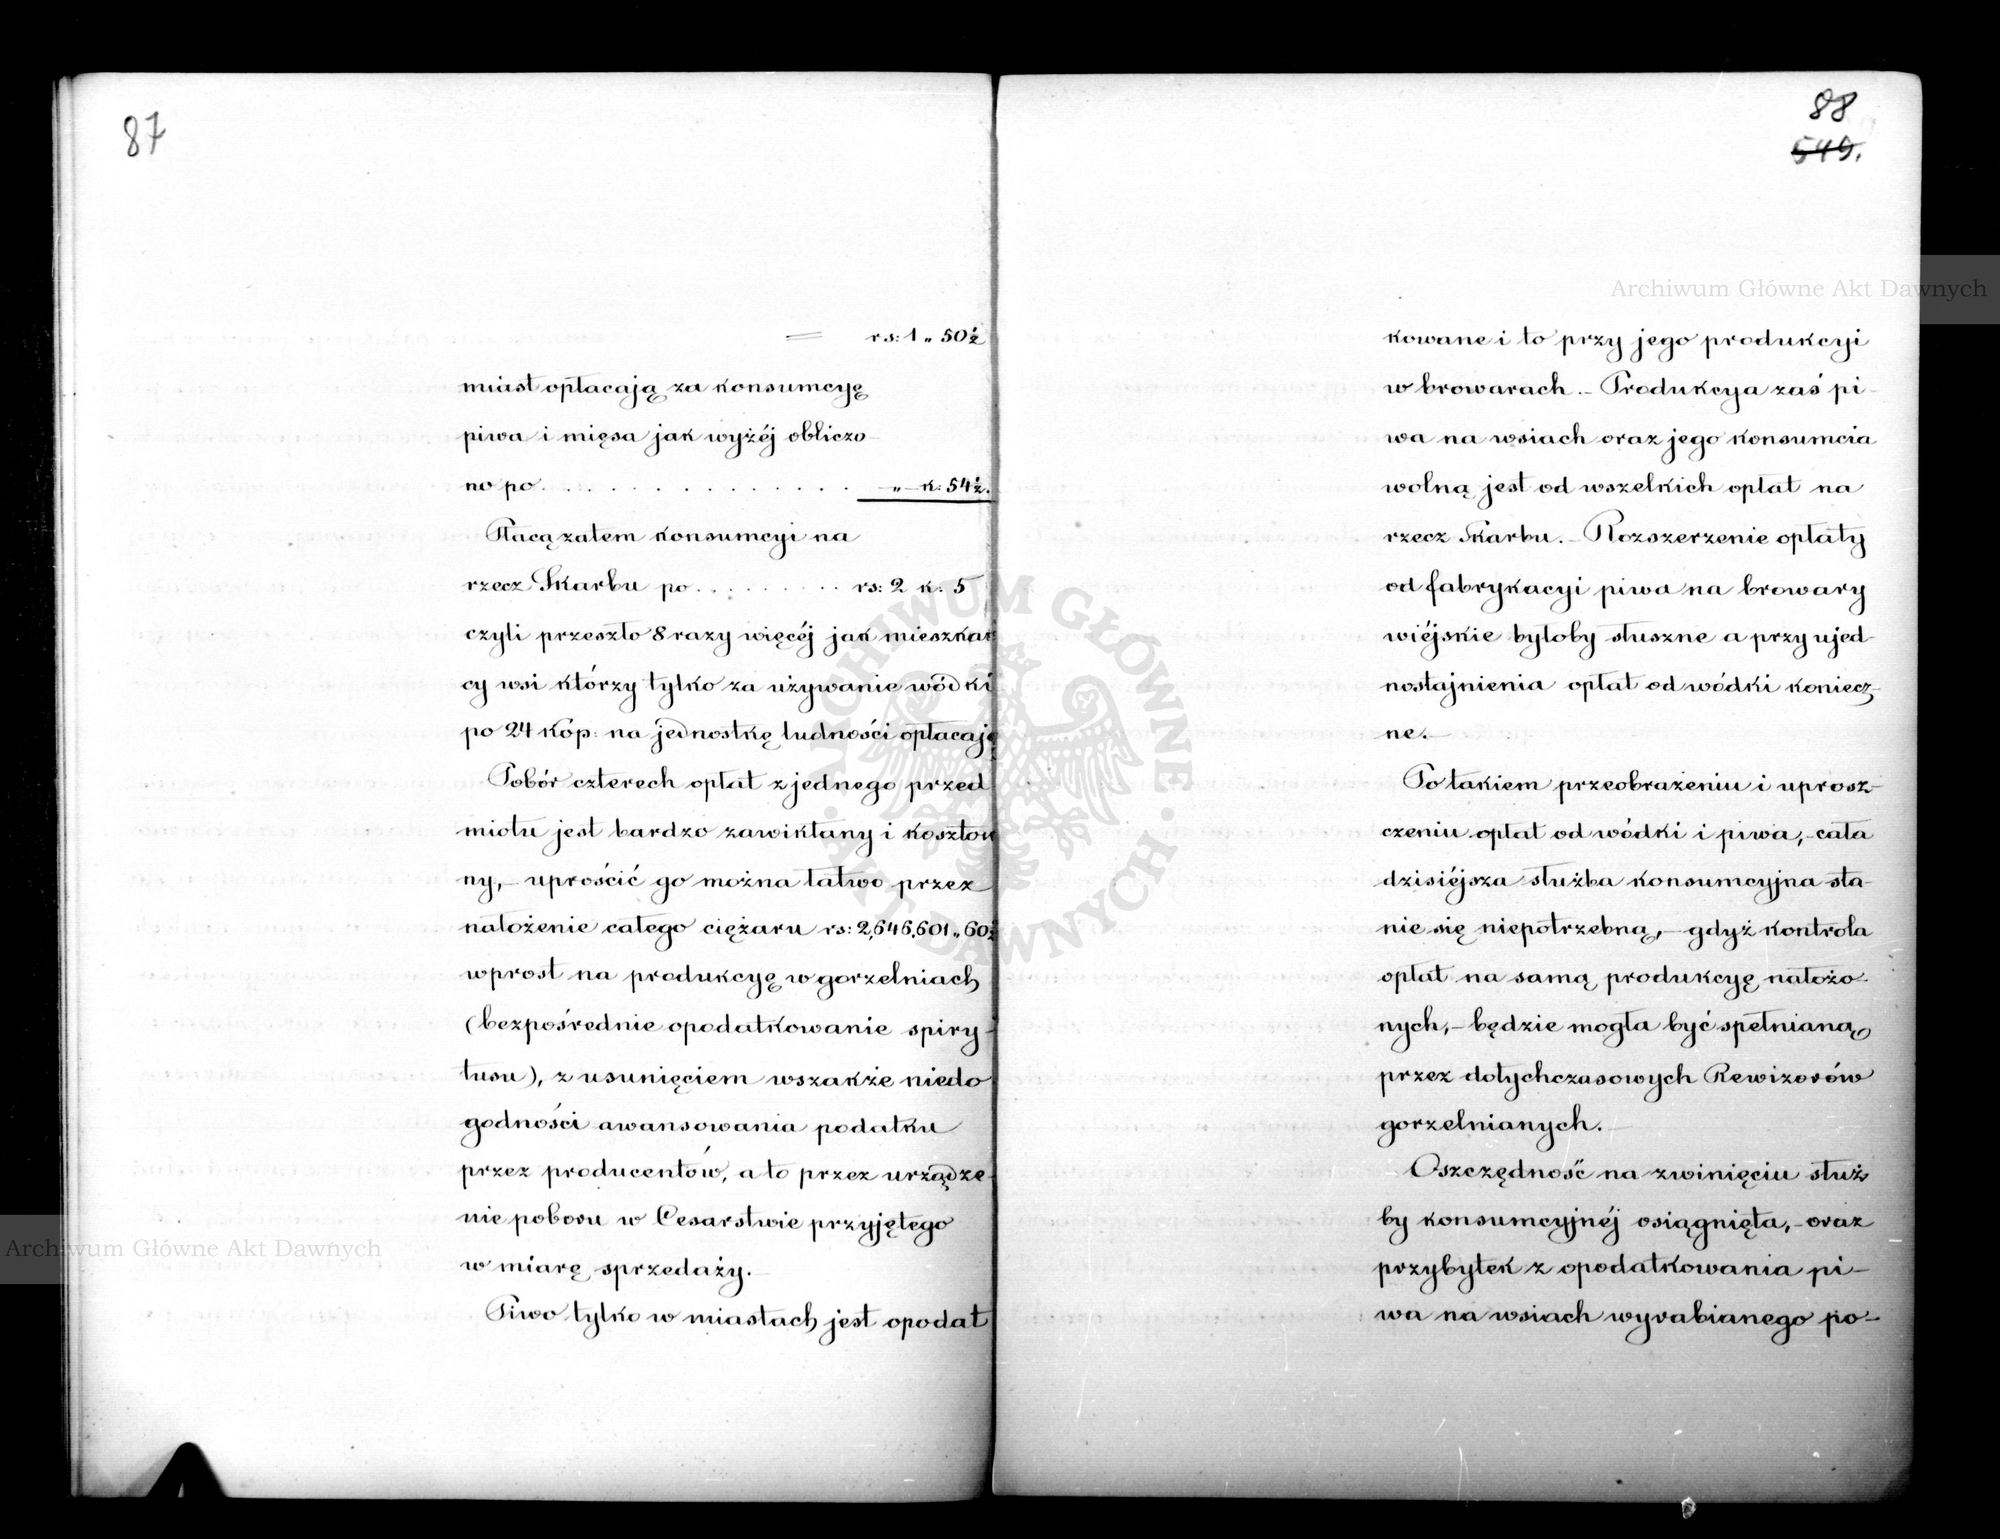 87
= rs: 1 „ 50½
miast opłacają za konsumcyę
piwa i mięsa jak wyżéj obliczo-
no po . . . . . . . . . . . . . . „ k: 54½.
Płacą zatem konsumcyi na
rzecz Skarbu po . . . . . . . . . rs: 2 k: 5
czyli przeszło 8 razy więcéj jak mieszkań
cy wsi którzy tylko za używanie wódki
po 24 kop: na jednostkę ludności opłacają
Pobór czterech opłat z jednego przed
miotu jest bardzo zawikłany i kosztow
ny, - uprościć go można łatwo przez
nałożenie całego ciężaru rs: 2,646,601 „ 60½
wprost na produkcyę w gorzelniach
(bezpośrednie opodatkowanie spiry-
tusu), z usunięciem wszakże niedo
godności awansowania podatku
przez producentów, a to przez urządze-
nie poboru w Cesarstwie przyjętego
w miarę sprzedaży.
Piwo tylko w miastach jest opodat
88
549.
kowane i to przy jego produkcyi
w browarach. - Produkcya zaś pi-
wa na wsiach oraz jego konsumcia
wolną jest od wszelkich opłat na
rzecz Skarbu. - Rozszerzenie opłaty
od fabrykacyi piwa na browary
wiéjskie byłoby słuszne a przy ujed-
nostajnienia opłat od wódki koniecz-
ne. -
Po takiem przeobrażeniu i uprosz-
czeniu opłat od wódki i piwa, - cała
dzisiéjsza służba konsumcyjna sta-
nie się niepotrzebną, - gdyż kontrola
opłat na samą produkcyę nałożo-
nych, - będzie mogła być spełnianą
przez dotychczasowych Rewizorów
gorzelnianych.
Oszczędność na zwinięciu służ
by konsumcyjnéj osiągnięta, - oraz
przybytek z opodatkowania pi-
wa na wsiach wyrabianego po-
Archiwum Główne Akt Dawnych
Archiwum Główne Akt Dawnych
ARCHIWUM GŁÓWNE · AKT DAWNYCH ·